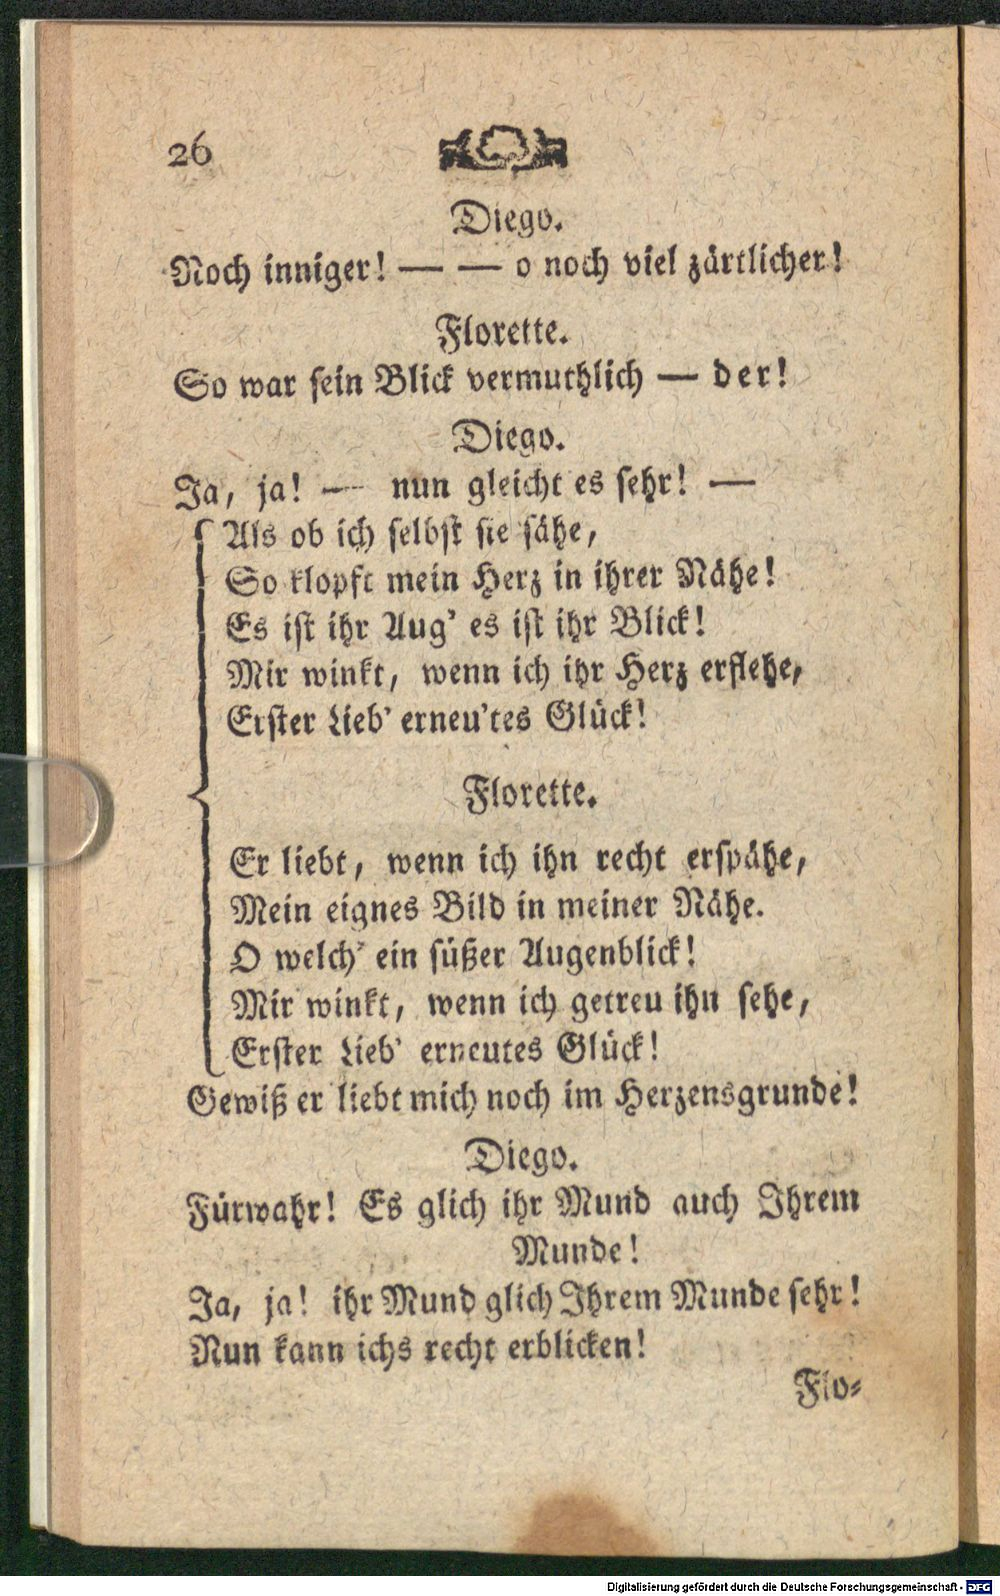 26
Diego.
Noch inniger! — — o noch viel zärtlicher!
Florette.
So war sein Blick vermuthlich — der!
Diego.
Ja, ja! — nun gleicht es sehr! —
Als ob ich selbst sie sähe,
So klopft mein Herz in ihrer Nähe!
Es ist ihr Aug' es ist ihr Blick!
Mir winkt, wenn ich ihr Herz erflehe,
Erster Lieb' erneu'tes Glück!
Florette.
Er liebt, wenn ich ihn recht erspähe,
Mein eignes Bild in meiner Nähe.
O welch' ein süßer Augenblick!
Mir winkt, wenn ich getreu ihn sehe,
Erster Lieb' erneutes Glück!
Gewiß er liebt mich noch im Herzensgrunde!
Diego.
Fürwahr! Es glich ihr Mund auch Ihrem
Munde!
Ja, ja! ihr Mund glich Ihrem Munde sehr!
Nun kann ichs recht erblicken!
Flo-
Digitalisierung gefördert durch die Deutsche Forschungsgemeinschaft - DFG